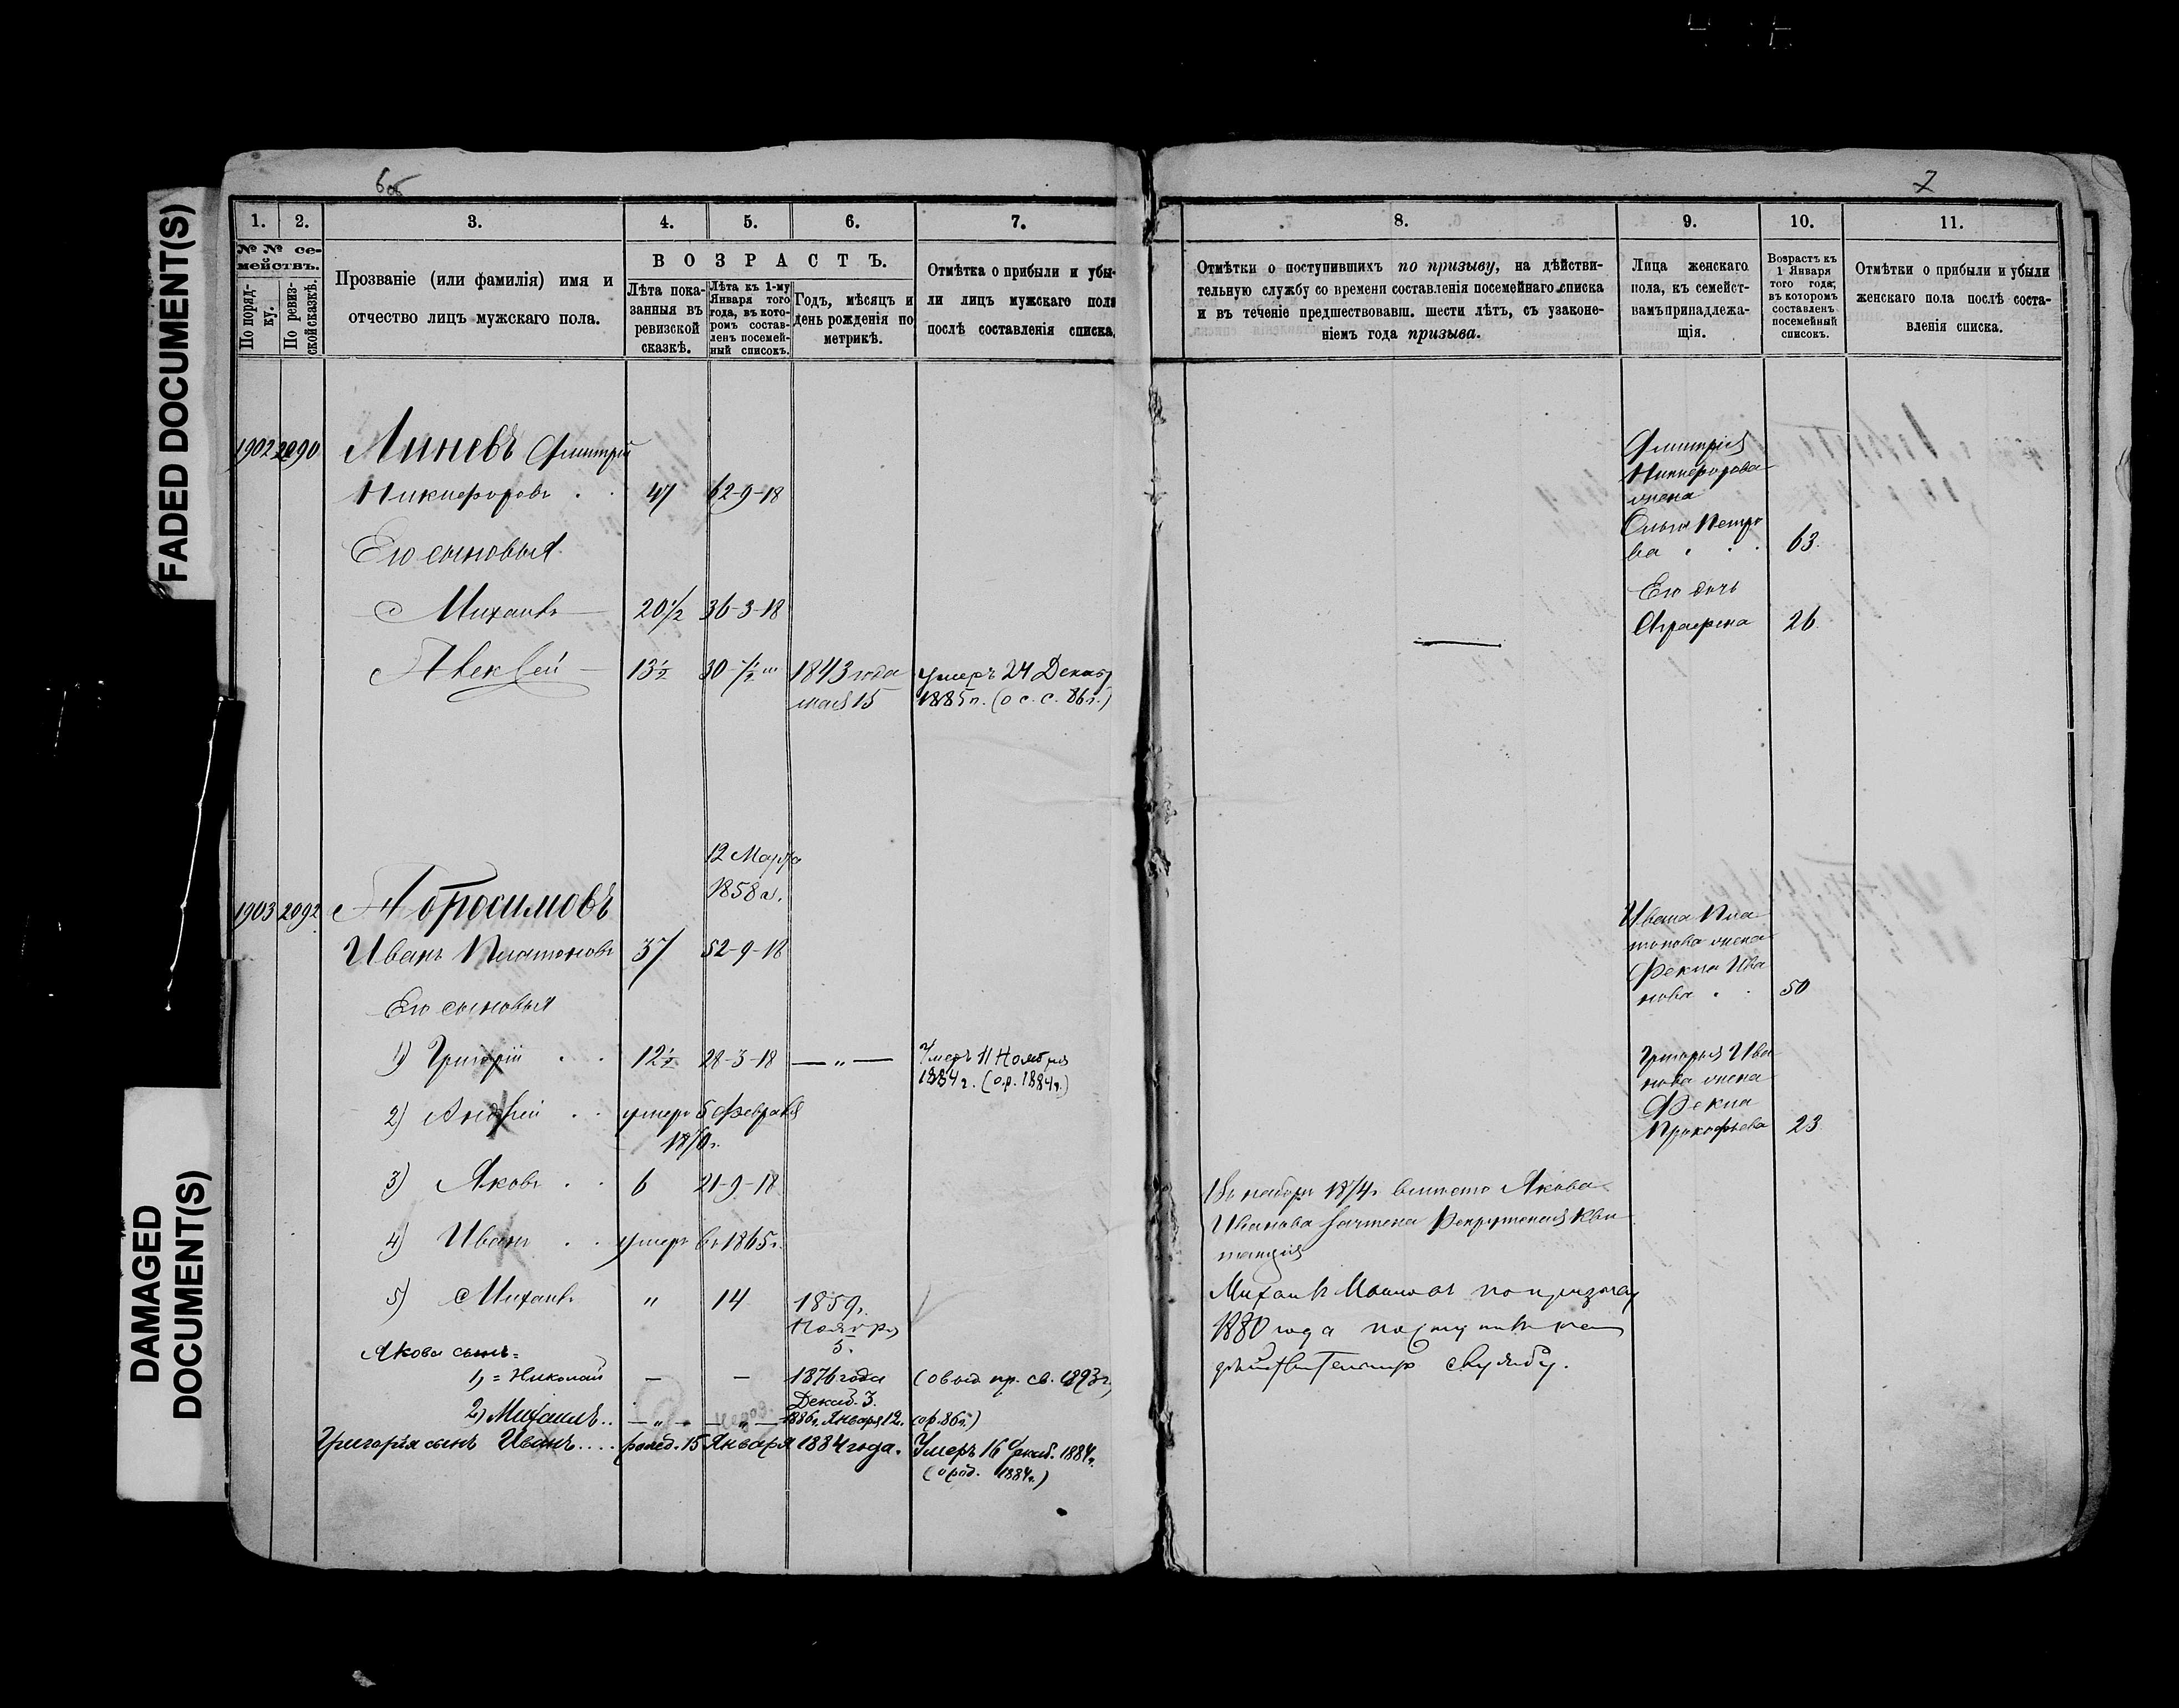 6об
7
FADED DOCUMENT(S)
DAMAGED
DOCUMENT(S)
1. 2. 3. 4. 5. 6. 7.
№ № се-
мействъ.
По поряд-
ку.
По ревиз-
ской сказкѣ.
Прозваніе (или фамилія) имя и
отчество лицъ мужскаго пола.
ВОЗРАСТЪ.
Лѣта пока-
занныя въ
ревизской
сказкѣ.
Лѣта къ 1-му
Января того
года, въ кото-
ромъ состав-
ленъ посемей-
ный списокъ.
Годъ, мѣсяцъ и
день рожденія по
метрикѣ.
Отмѣтка о прибыли и убы-
ли лицъ мужскаго пола
послѣ составленія списка.
8. 9. 10. 11.
Отмѣтки о поступившихъ по призыву, на дѣйстви-
тельную службу со времени составленія посемейнаго списка
и въ теченіе предшествовавш. шести лѣтъ, съ узаконе-
ніемъ года призыва.
Лица женскаго
пола, къ семейст-
вамъ принадлежа-
щія.
Возрастъ къ
1 Января
того года,
въ которомъ
составленъ
посемейный
списокъ.
Отмѣтки о прибыли и убыли
женскаго пола послѣ соста-
вленія списка.
1902 2090 Линевъ Дмитрій
Никифоровъ . . 47 62-9-18
Его сыновья
Михаилъ 20½ 36-3-18
Алексѣй 13½ 30-½ 1843 года
мая 15
умеръ 24 Декаб
1885 г. (о с. с. 86 г.)
Дмитрія
Никифорова
жена
Ольга Петро
ва . . . 63
Его дочь
Аграфена 26
12 Марта
1858 г.
1903 2092 Абросимовъ
Иванъ Платоновъ 37 52-9-18
Его сыновья
1) Григорій . . 12½ 28-3-18 — „ —
Умеръ 11 Ноября
1884 г. (ор. 1884 г.)
2) Андрей . . умеръ 5 Февраля
1870 г.
3) Яковъ . . 6 21-9-18
4) Иванъ . . умеръ въ 1865 г.
5) Михаилъ „ 14 1859 г.
Ноября
5.
Якова сынъ =
1) = Николай — — 1876 года
Декаб. 3.
(о выд пр. св. 1893 г.)
2) Михаилъ.. — „ — — „ — 1886 г. Января 12. (ор. 86 г.)
Григорія сынъ Иванъ.... рожд. 15 Января 1884 года. Умеръ 16 Декаб. 1884 г.
(о род. 1884 г.)
Ивана Пла
тонова жена
Фекла Ива
нова . . 50
Григорья Ива
нова жена
Фекла
Прокофьева 23
Въ наборъ 1874 г. вмѣсто Якова
Иванова зачтена Рекрутская Кви
танція
Михаилъ Ивановъ по призыву
1880 года поступилъ на
дѣйствительную службу.